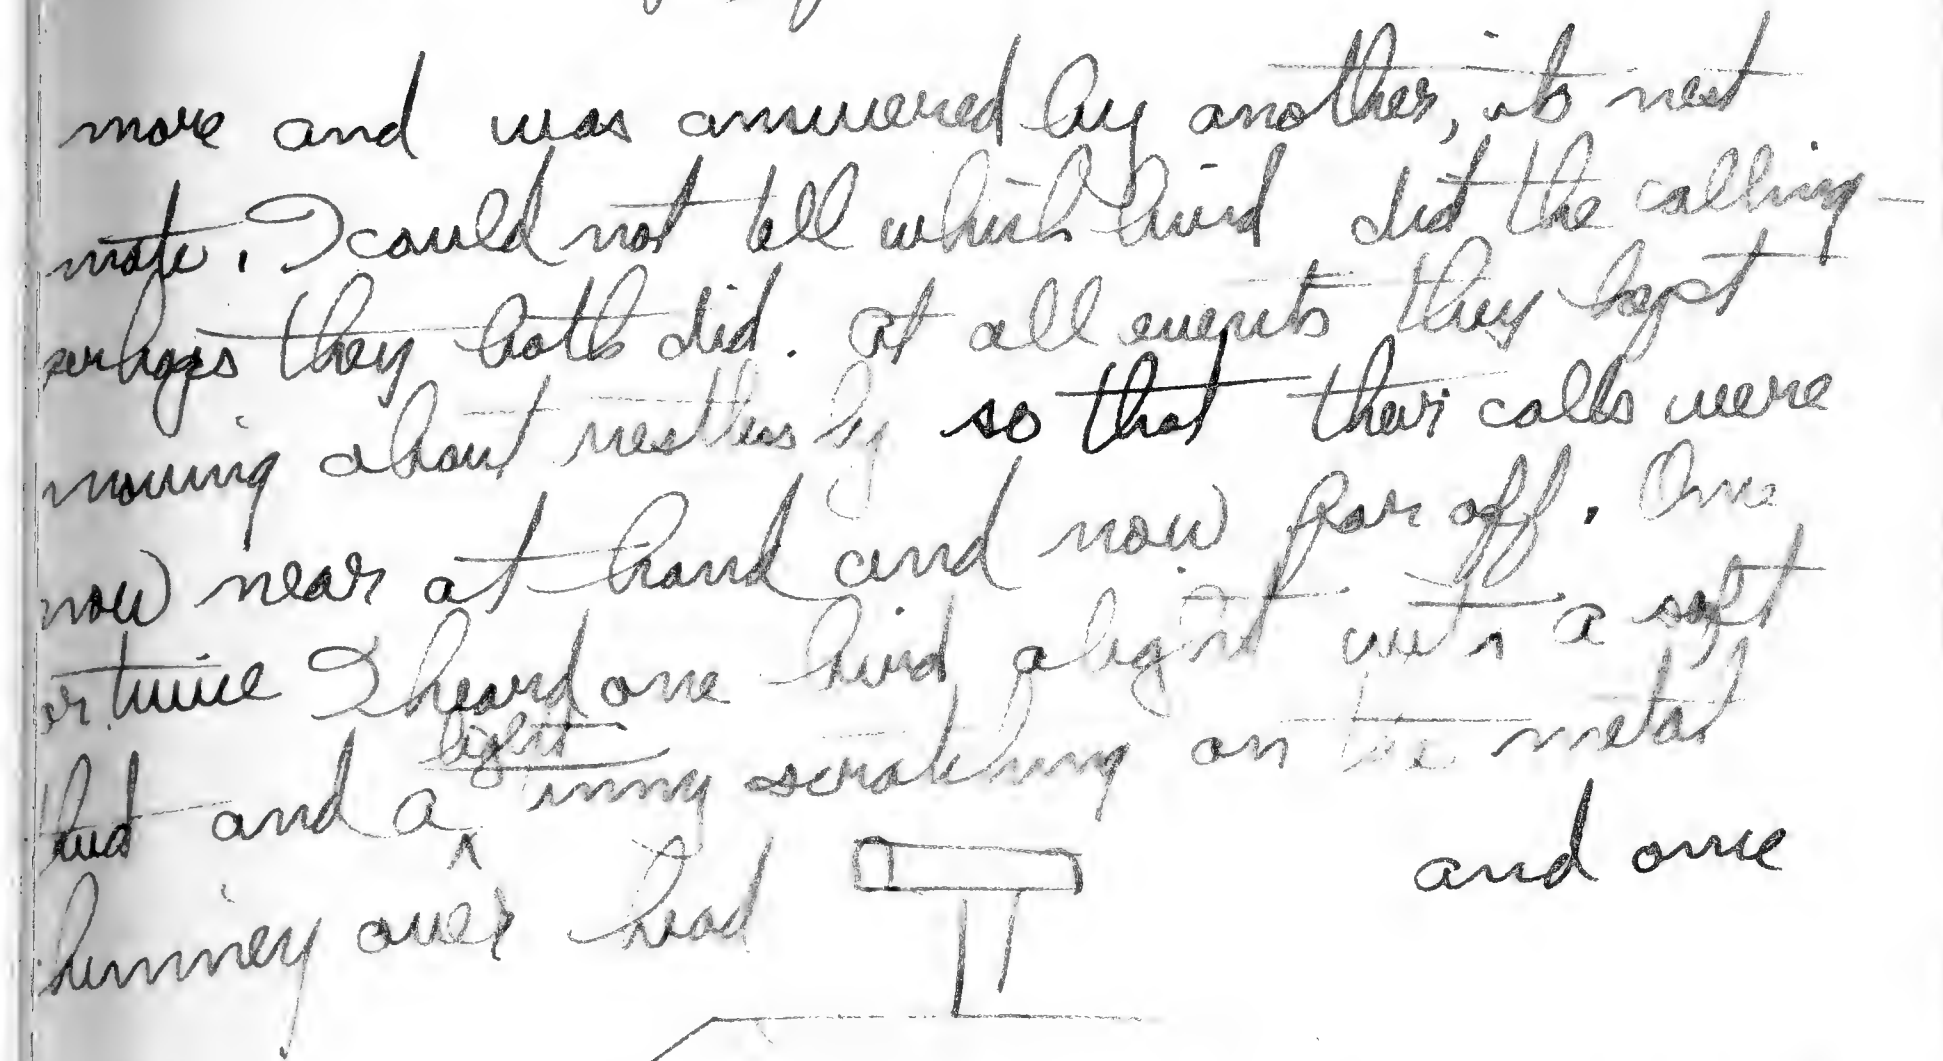 more and was answered by another, its nest
mate. I could not tell which bird did the calling –
perhaps they both did. At all events they kept
moving about restlessly so that their calls were
now near at hand and now far off. Once
or twice I heard one bird alight with a soft
thud and a light tinny scratching on the metal
chimney over head
and once